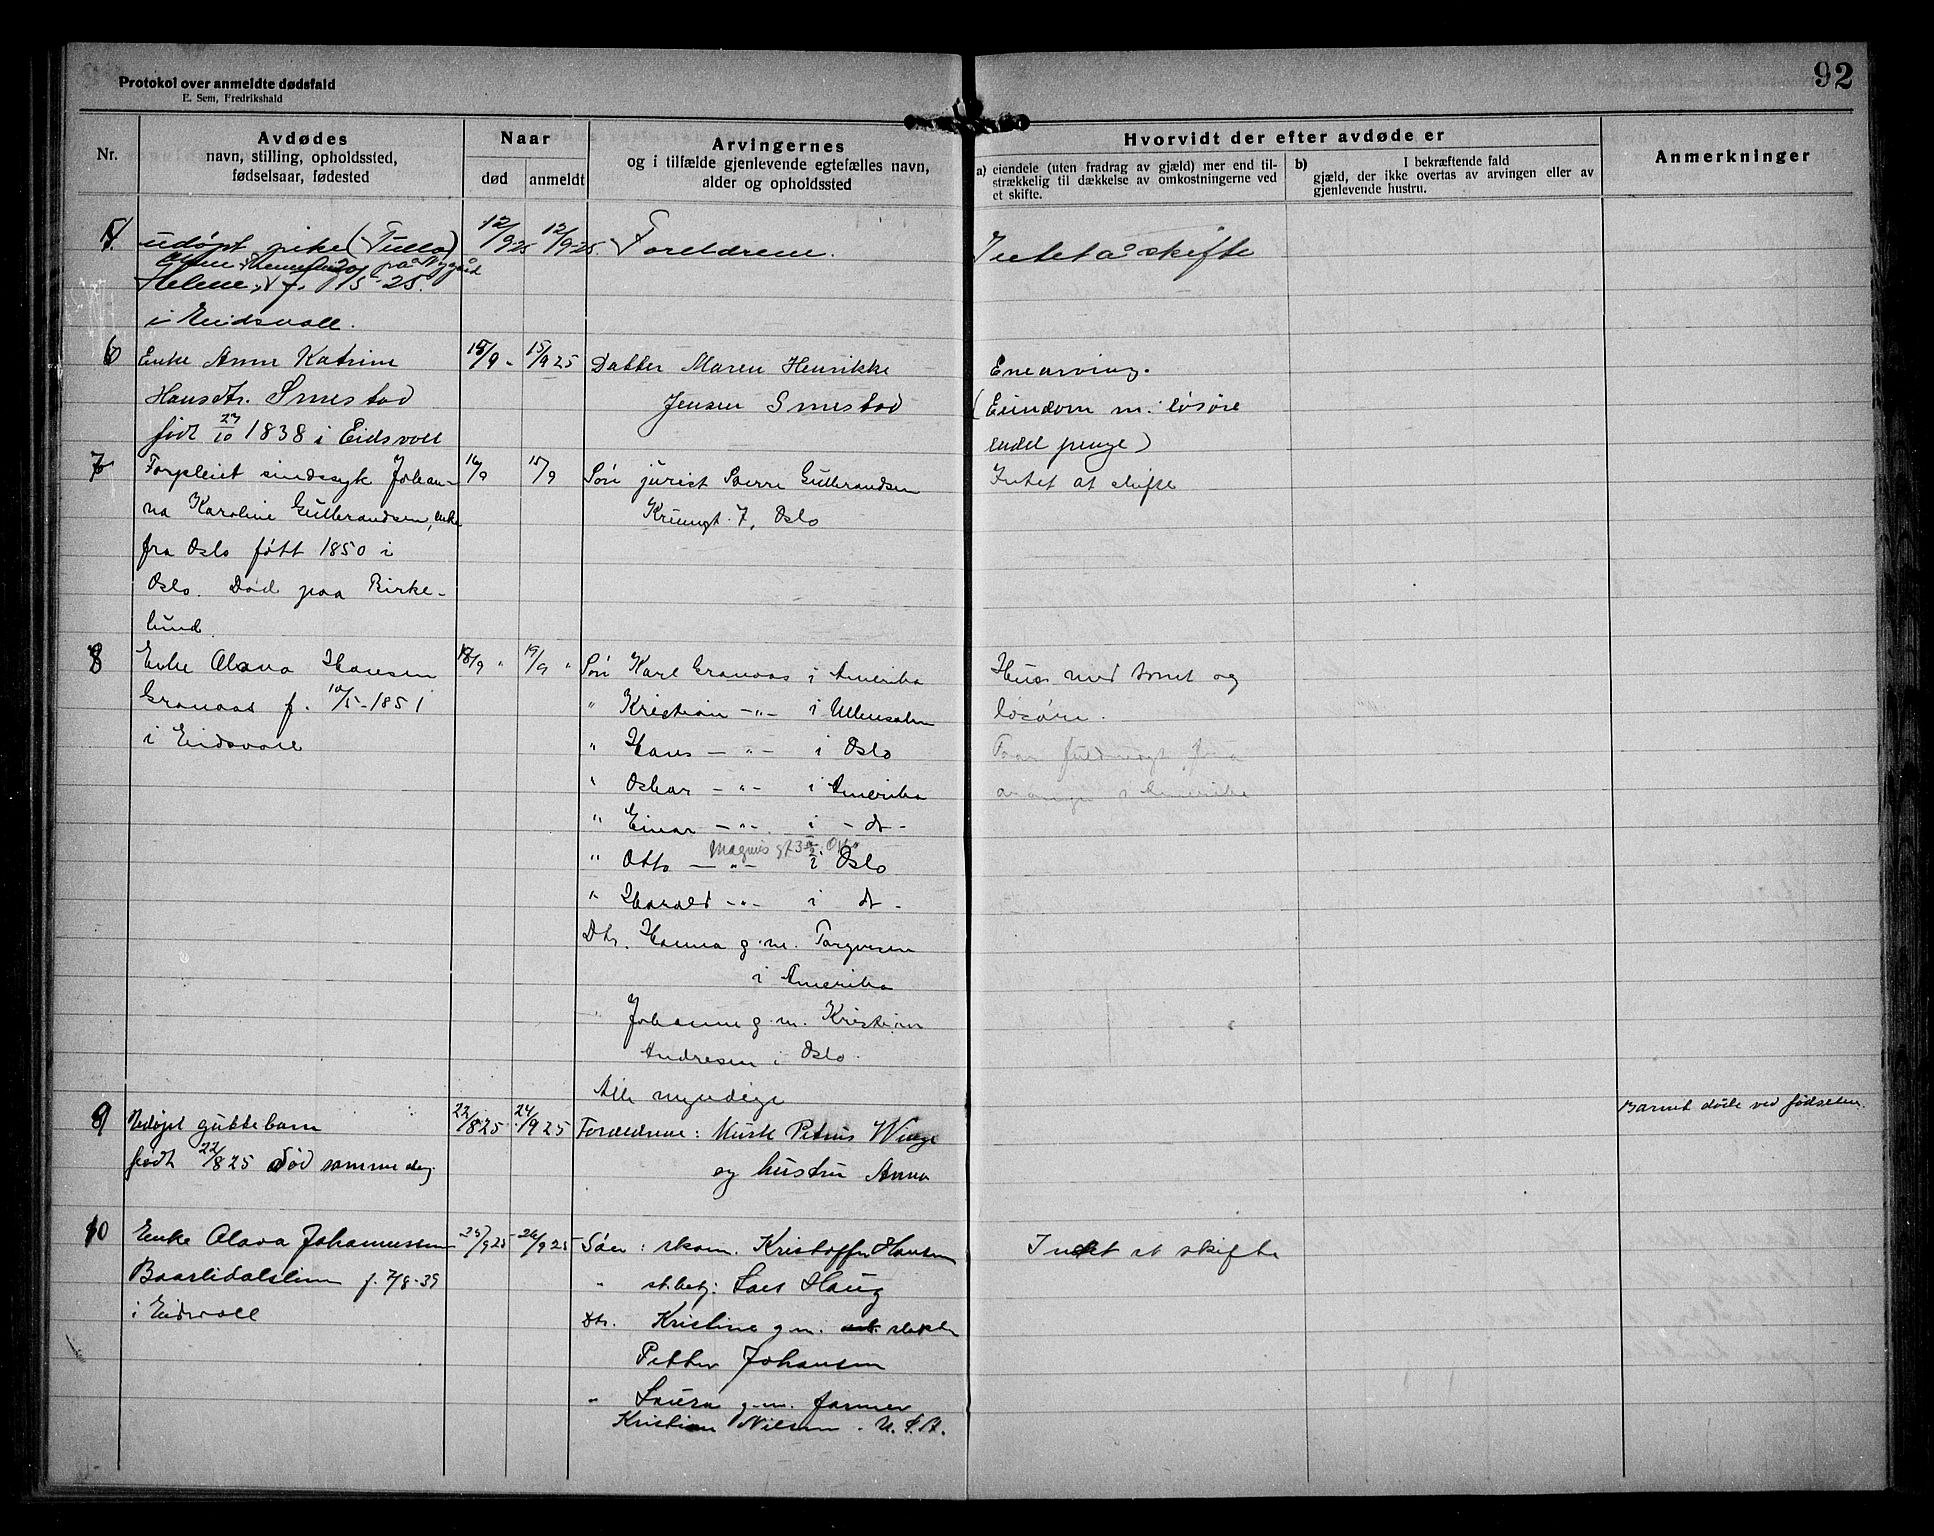 92
Protokol over anmeldte dødsfald
E. Sem, Fredrikshald
Nr.
Avdødes
navn, stilling, opholdssted,
fødselsaar, fødested
Naar
død
anmeldt
Arvingernes
og i tilfælde gjenlevende egtefælles navn,
alder og opholdssted
Hvorvidt der efter avdøde er
a) eiendele (uten fradrag av gjæld) mer end til-
strækkelig til dækkelse av omkostningerne ved
et skifte.
b) I bekræftende fald
gjæld, der ikke overtas av arvingen eller av
gjenlevende hustru.
Anmerkninger
5
udøpt pike (Tulla)
på Nygård
Helene, f. /5-25.
i Eidsvoll.
12/9 25
12/9 25
Foreldrene.
Intet å skifte
6
Enke Anne Katrine
Hansdtr. Smestad
født 27/10 1838 i Eidsvoll
15/9 "
15/9 25
Datter Maren Henrikke
Jensen Smestad
Enearving.
(Eiendom m. løsøre
endel penge)
7
Forpleiet sindssyk Johan-
na Karoline Gulbrandsen, enke
fra Oslo født 1850 i
Oslo. Død paa Birke-
lund
14/9
15/9
Søn jurist Sverre Gulbrandsen
7, Oslo
Intet at skifte
8
Enke Olava Hansen
Granaas f. 10/5-1851
i Eidsvoll
18/9 "
19/9 "
Søn Karl Granaas i Amerika
" Kristian -"- i Ullensaker
" Hans -"- i Oslo
" Oskar -"- i Amerika
" Einar -"- i - dt -
Magnus gt 3
" Otto -"- i Oslo
" Harald -"- i dt -
Dtr. Hanna g.m. Torgersen
i Amerika
" Johanne g.m. Kristian
Andresen i Oslo.
Alle myndige
Hus med tomt og
løsøre.
Faar fuldmagt fra
arvinger i Amerika
9
Udøpt guttebarn
født 22/8 25 død samme dag
22/8 25
24/9 25
Forældrene: Petrus Winge
og hustru Anna
Barnet døde ved fødselen.
10
Enke Olava Johannessen
f. 7/8-39
i Eidsvoll
25/9 25
26/9 25
Søn: skom. Kristoffer Hansen
" Lars Haug
Dtr. Kristine g.m.
Petter Johansen
" Laura g.m. farmer
Kristian Nilsen. U.S.A.
Intet at skifte